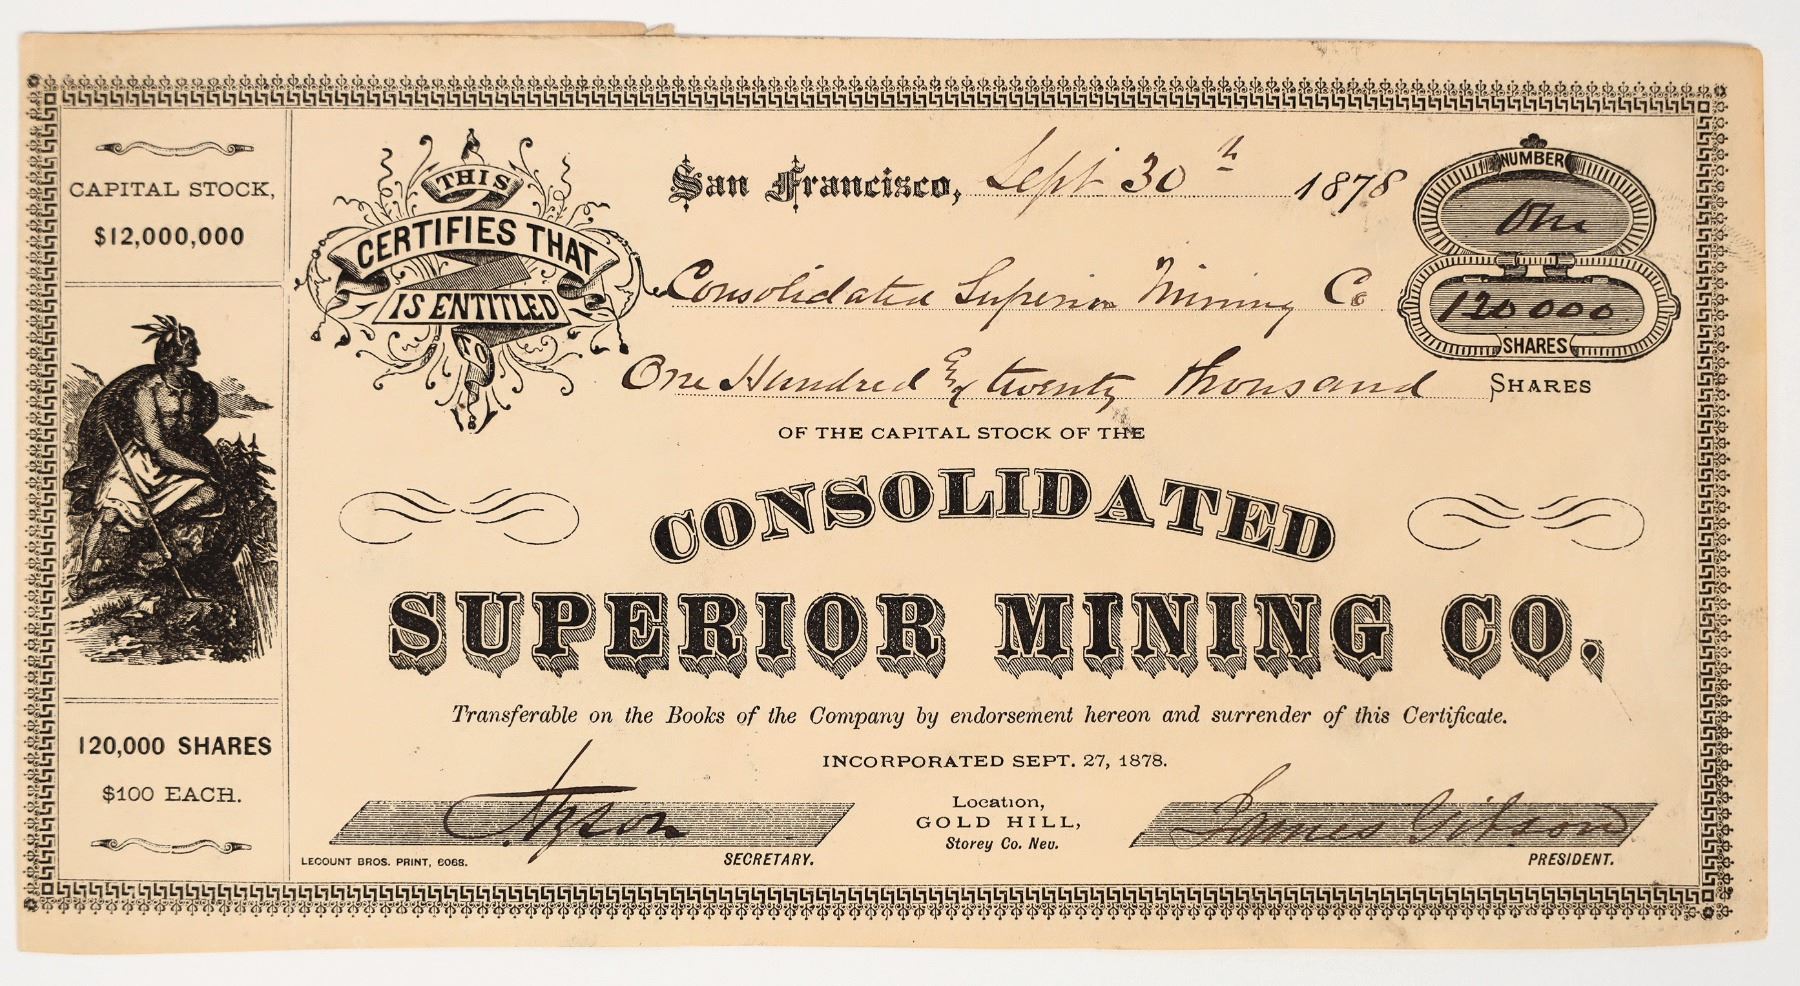 CAPITAL STOCK,
$12,000,000
120,000 SHARES
$100 EACH.
THIS
CERTIFIES THAT
IS ENTITLED
TO
San Francisco, Sept 30th 1878
NUMBER
One
120000
SHARES
Consolidated Superior Mining Co
One Hundred & twenty thousand SHARES
OF THE CAPITAL STOCK OF THE
CONSOLIDATED
SUPERIOR MINING CO.
Transferable on the Books of the Company by endorsement hereon and surrender of this Certificate.
INCORPORATED SEPT. 27, 1878.
Location,
GOLD HILL,
Storey Co. Nev.
LECOUNT BROS. PRINT, 6068.
SECRETARY.
James Gibson
PRESIDENT.